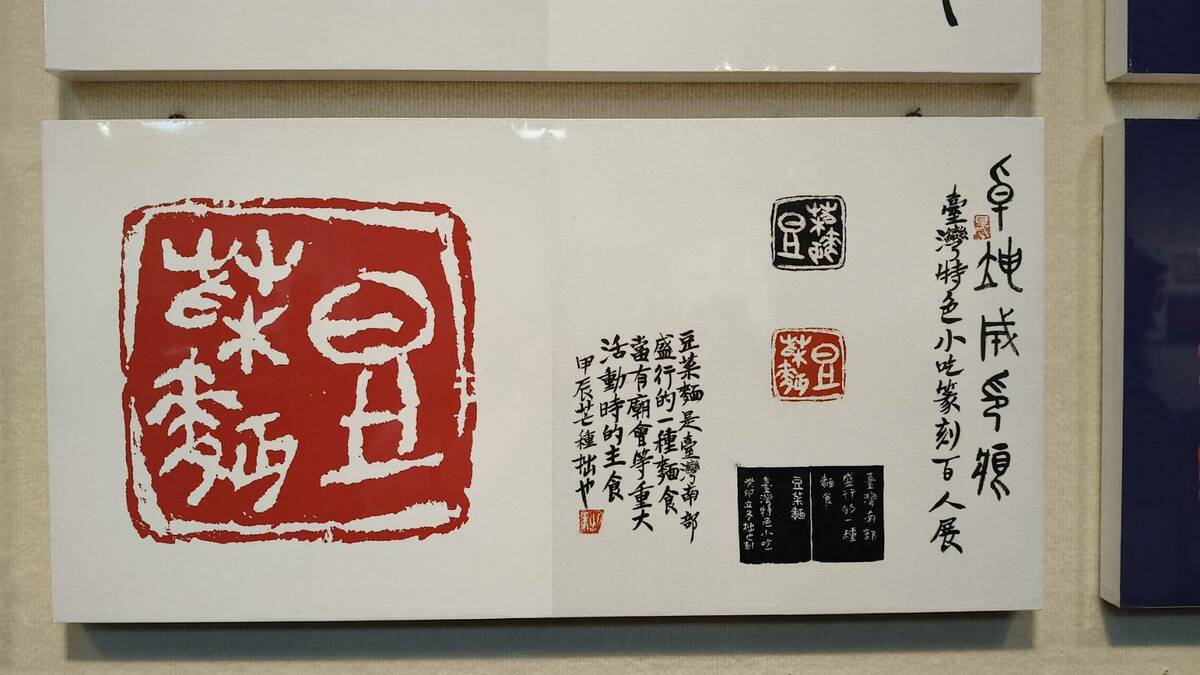 臺灣特色小吃篆刻百人展
豆
菜麵
豆
菜麵
臺灣南部
盛行的一種
麵食
豆菜麵
臺灣特色小吃
癸卯立冬拙也刻
豆菜麵是臺灣南部
盛行的一種麵食
當有廟會等重大
活動時的主食
甲辰芒種拙也
豆
菜麵